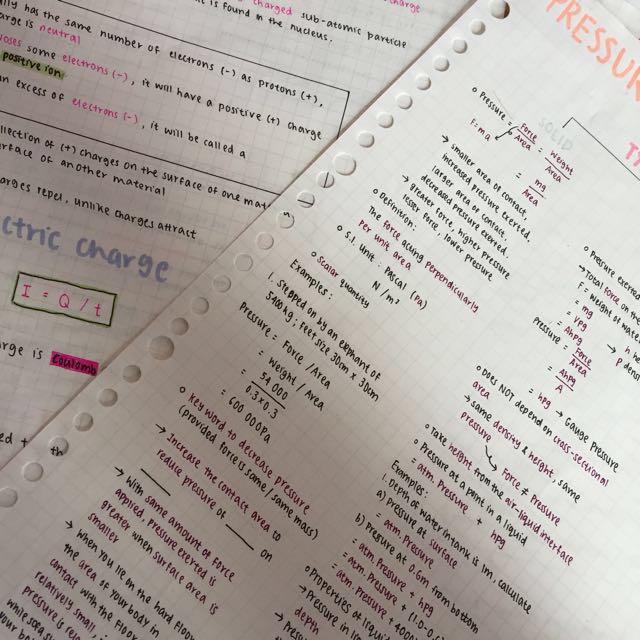 charge
charged sub-atomic particle
is found in the nucleus.
has the same number of electrons (-) as protons (+),
charge is neutral
loses some electrons (-), it will have a positive (+) charge
positive ion
an excess of electrons (-), it will be called a
collection of (+) charges on the surface of one
surface of another material
charges repel, unlike charges attract
ctric charge
I = Q / t
charge is Coulomb
PRESSUR
SOLID
Pressure = Force / Area = Weight / Area
F = ma
= mg / Area
→ smaller area of contact,
increased pressure exerted.
larger area of contact,
decreased pressure exerted.
→ greater force, higher pressure
less force, lower pressure
Definition:
The force acting perpendicularly
per unit area
S.I. Unit: Pascal (Pa)
N / m²
Scalar quantity
Examples:
1. Stepped on by an elephant of
5400kg, feet size 30cm × 30cm
Pressure = Force / Area
= Weight / Area
= 54 000 / 0.3 × 0.3
= 600 000Pa
Key word to decrease pressure
(provided force is same / same mass)
→ Increase the contact area to
reduce pressure of ___ on
___
→ With same amount of force
applied, pressure exerted is
greater when surface area is
smaller
→ When you lie on the hard floor,
the area of your body in
contact with the floor
relatively small
pressure is
Pressure
→ Total force on the
F = weight of water
= mg
= Vρg
= Ahρg
Pressure = Force / Area
= Ahρg / A
= hρg → Gauge Pressure
Does NOT depend on cross-sectional
area
→ same density & height, same
pressure
Force ≠ Pressure
Take height from the air-liquid interface
Pressure at a point in a liquid
= atm. Pressure + hρg
Examples:
1. Depth of water in tank is 1m, calculate
a) Pressure at surface
= atm. Pressure
b) Pressure at 0.6m from bottom
= atm. Pressure + hρg
= atm. Pressure + (1.0-0.6)
= atm. Pressure + 4000
Properties of liquid
→ Pressure in
depth